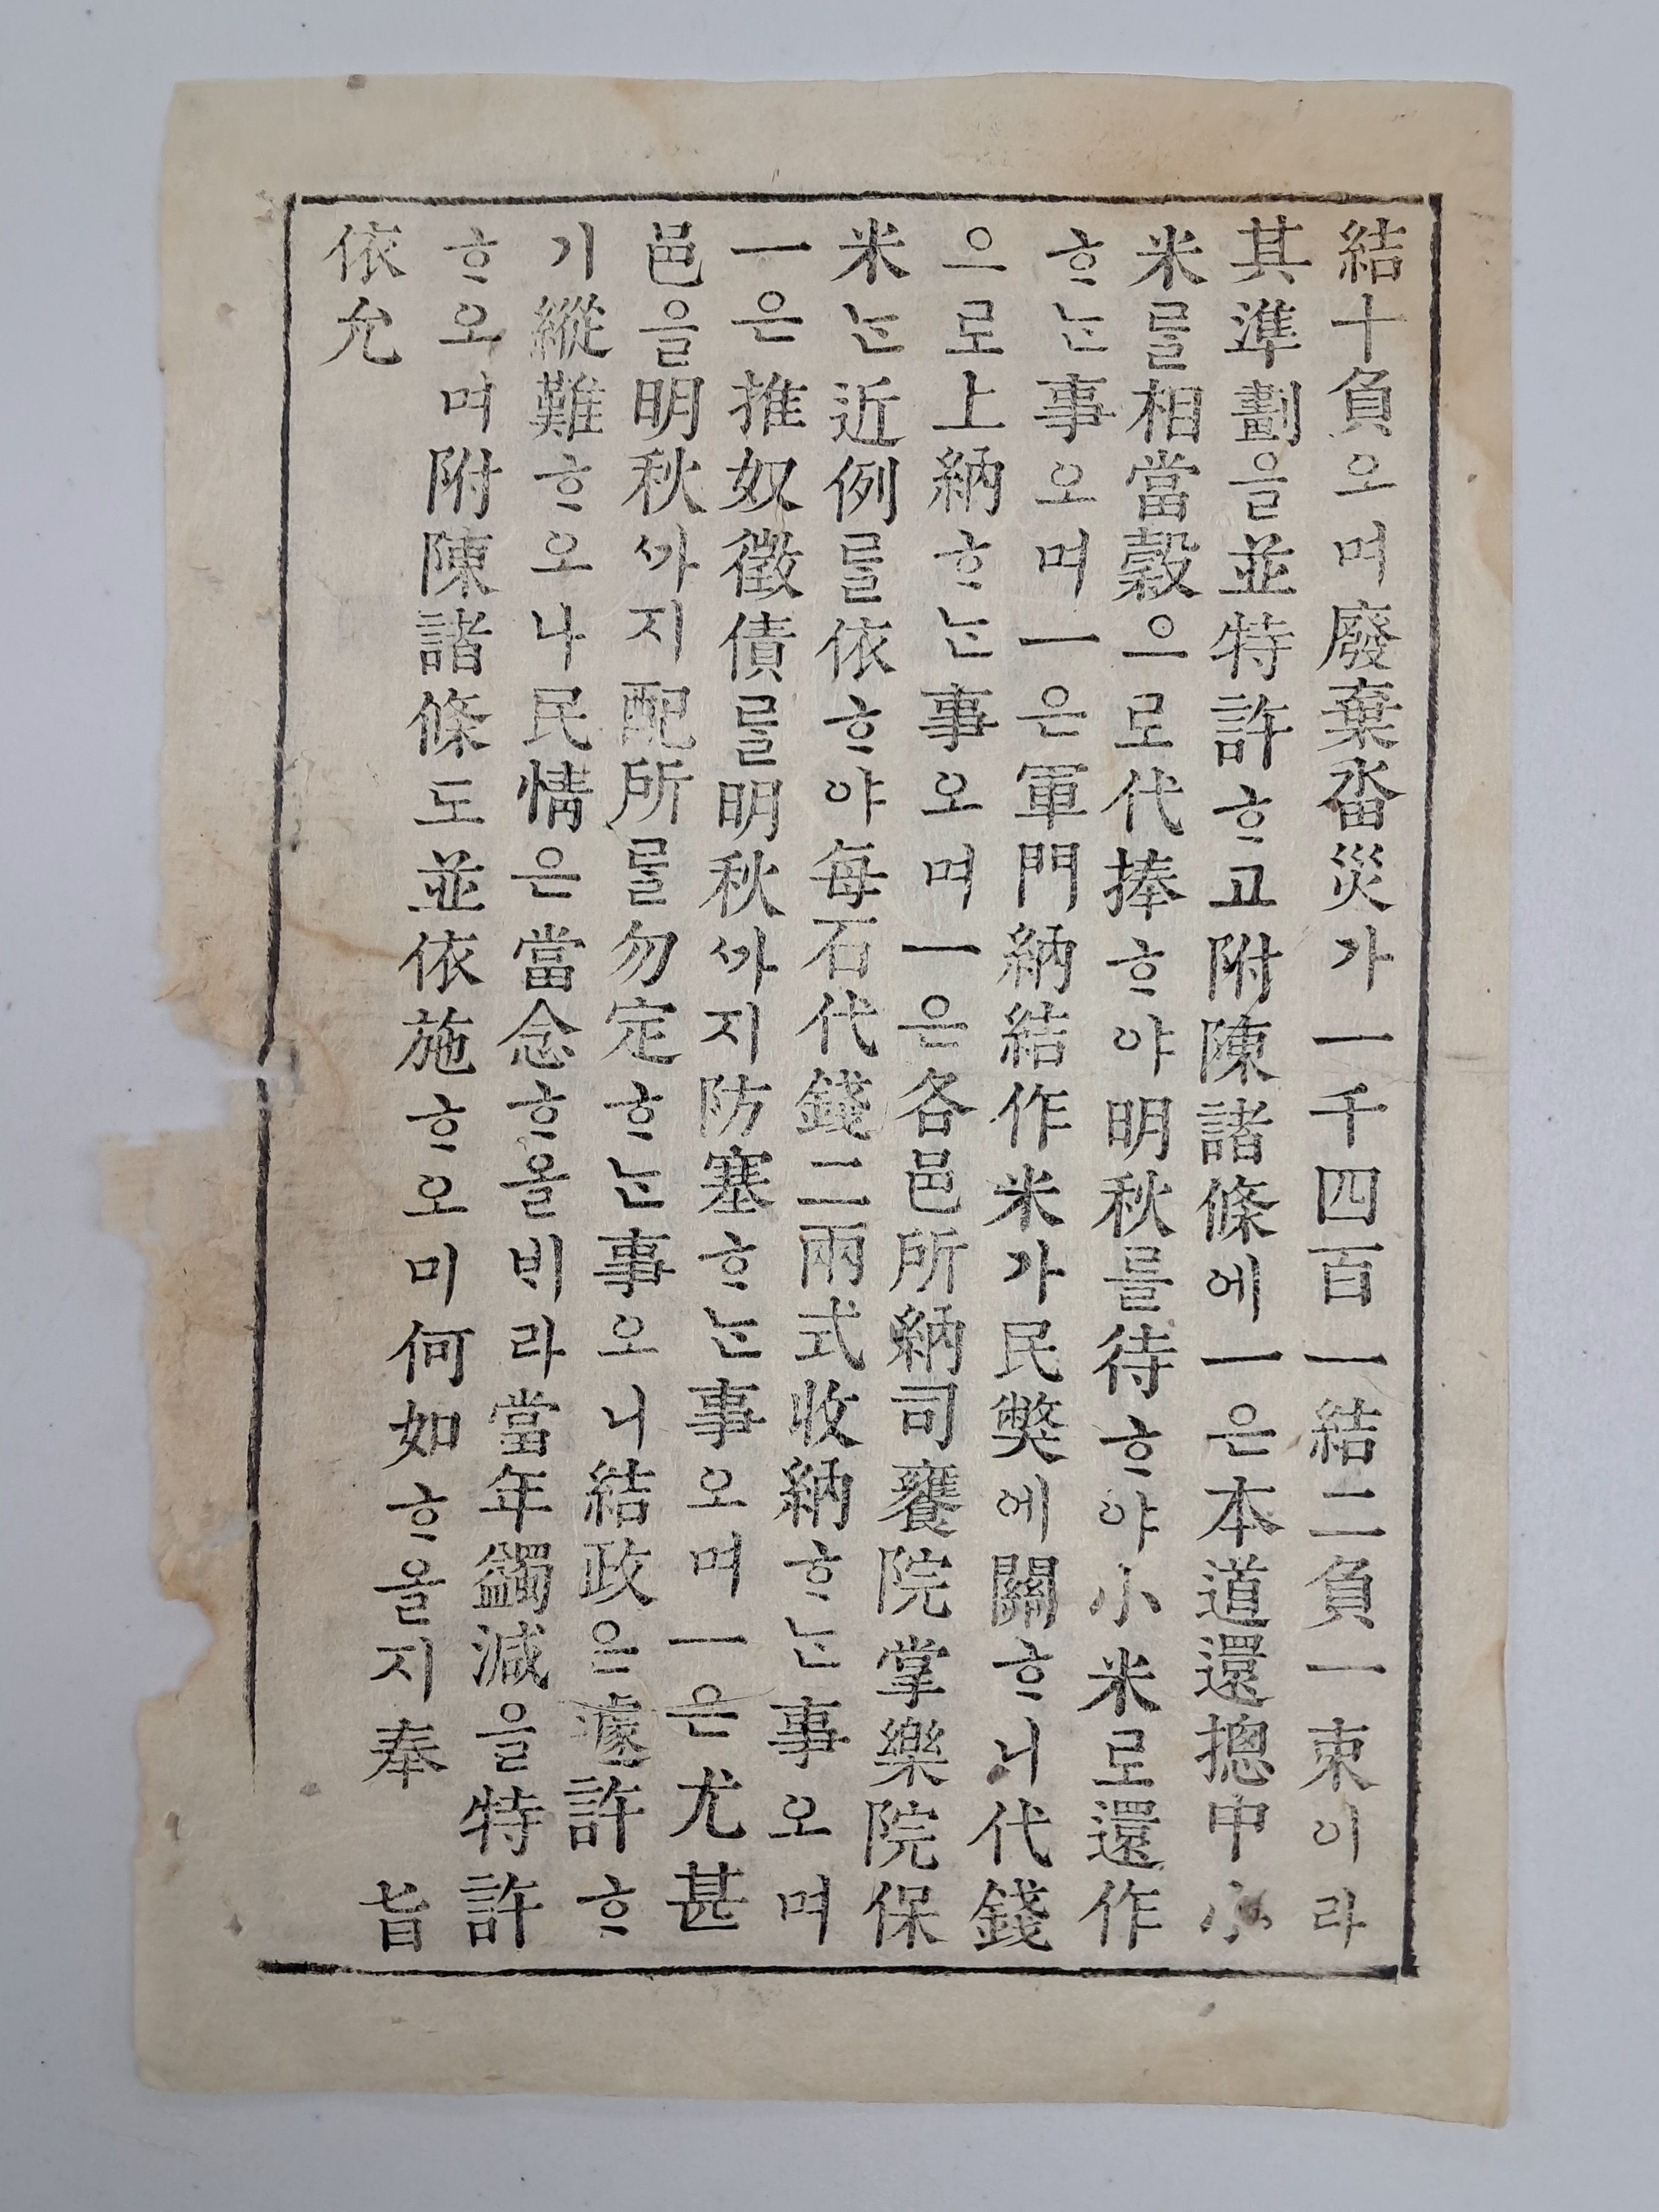 結十負오며廢棄畓災가一千四百一結二負一束이라
其準劃을並特許ᄒᆞ고附陳諸條에一은本道還摠中小
米를相當穀으로代捧ᄒᆞ야明秋를待ᄒᆞ야小米로還作
ᄒᆞᄂᆞᆫ事오며一은軍門納結作米가民弊에關ᄒᆞ니代錢
으로上納ᄒᆞᄂᆞᆫ事오며一은各邑所納司饔院掌樂院保
米ᄂᆞᆫ近例를依ᄒᆞ야每石代錢二兩式收納ᄒᆞᄂᆞᆫ事오며
一은推奴徵債를明秋ᄭᅡ지防塞ᄒᆞᄂᆞᆫ事오며一은尤甚
邑을明秋ᄭᅡ지配所를勿定ᄒᆞᄂᆞᆫ事오니結政은遽許ᄒᆞ
기縱難ᄒᆞ오나民情은當念ᄒᆞ올비라當年蠲減을特許
ᄒᆞ오며附陳諸條도並依施ᄒᆞ오미何如ᄒᆞ올지奉 旨
依允